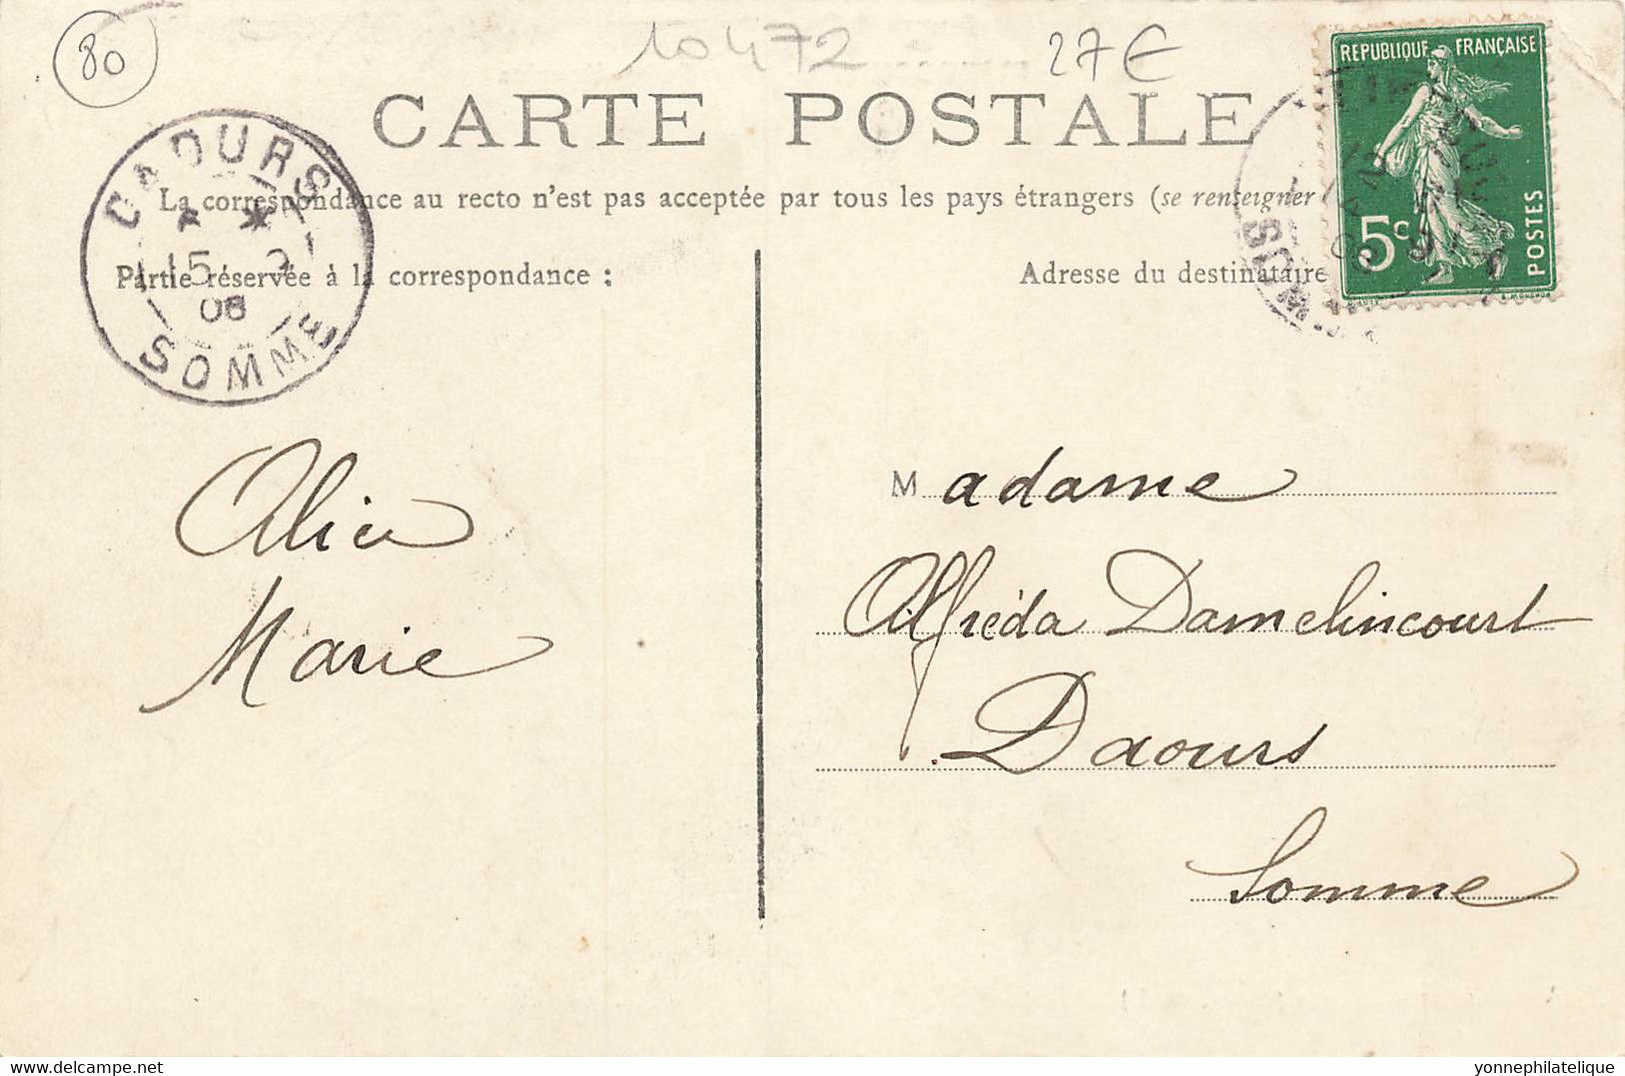 80
10472
27€
CARTE POSTALE
REPUBLIQUE FRANÇAISE
5c
POSTES
La correspondance au recto n'est pas acceptée par tous les pays étrangers (se renseigner
Partie réservée à la correspondance :
Adresse du destinataire
SOMME
Alice
Marie
Madame
Alfréda Damelincourt
Daours
Somme
yonnephilatelique